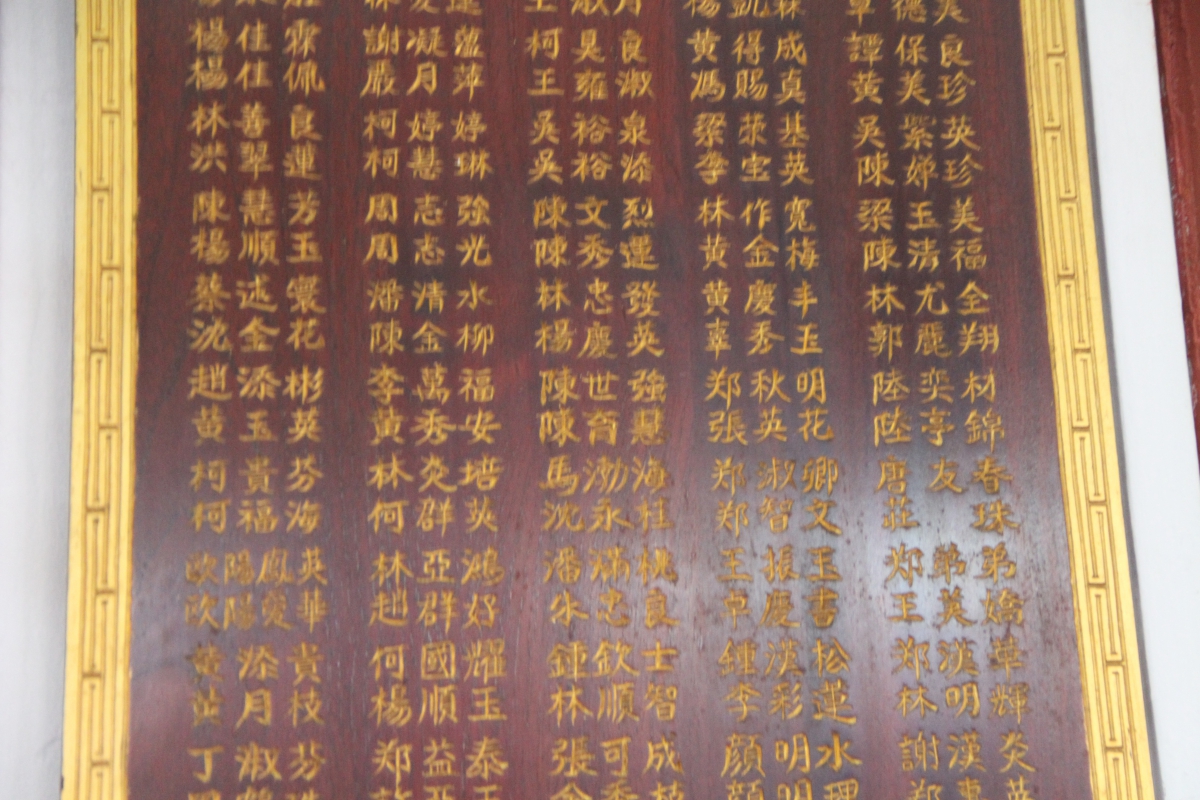 楊佳霖 謝凝薀 柯昊良 黃得成 譚保良
楊佳佩 嚴月萍 王雍淑 馮賜真 黃美珍
林善良 柯婷婷 吳裕泉 梁荣基 吳紫英
洪翠蓮 柯慧琳 吳裕添 李宝英 陳婵珍
陳慧芳 周志強 陳文烈 林作寬 梁玉美
楊順玉 周志光 陳秀蓮 黃金梅 陳清福
蔡述寰 潘清水 林忠發 黃慶丰 林尤全
沈金花 陳金柳 楊慶英 辜秀玉 郭麗翔
趙添彬 李萬福 陳世強 郑秋明 陸奕材
黃玉英 黃秀安 陳育慧 張英花 陸亭錦
柯貴芬 林炎培 馬渤海 郑淑卿 唐友春
柯福海 何群英 沈永桂 郑智文 莊珠
欧陽鳳英 林亞鴻 潘滿桃 王振玉 郑弟弟
欧陽愛華 趙群好 朱忠良 卓慶書 王美嬌
黃添貴 何國耀 鍾欽士 鍾漢松 郑漢華
黃月枝 楊順玉 林順智 李彩蓮 林明輝
丁淑芬 郑益泰 張可成 顏明水 謝漢炎